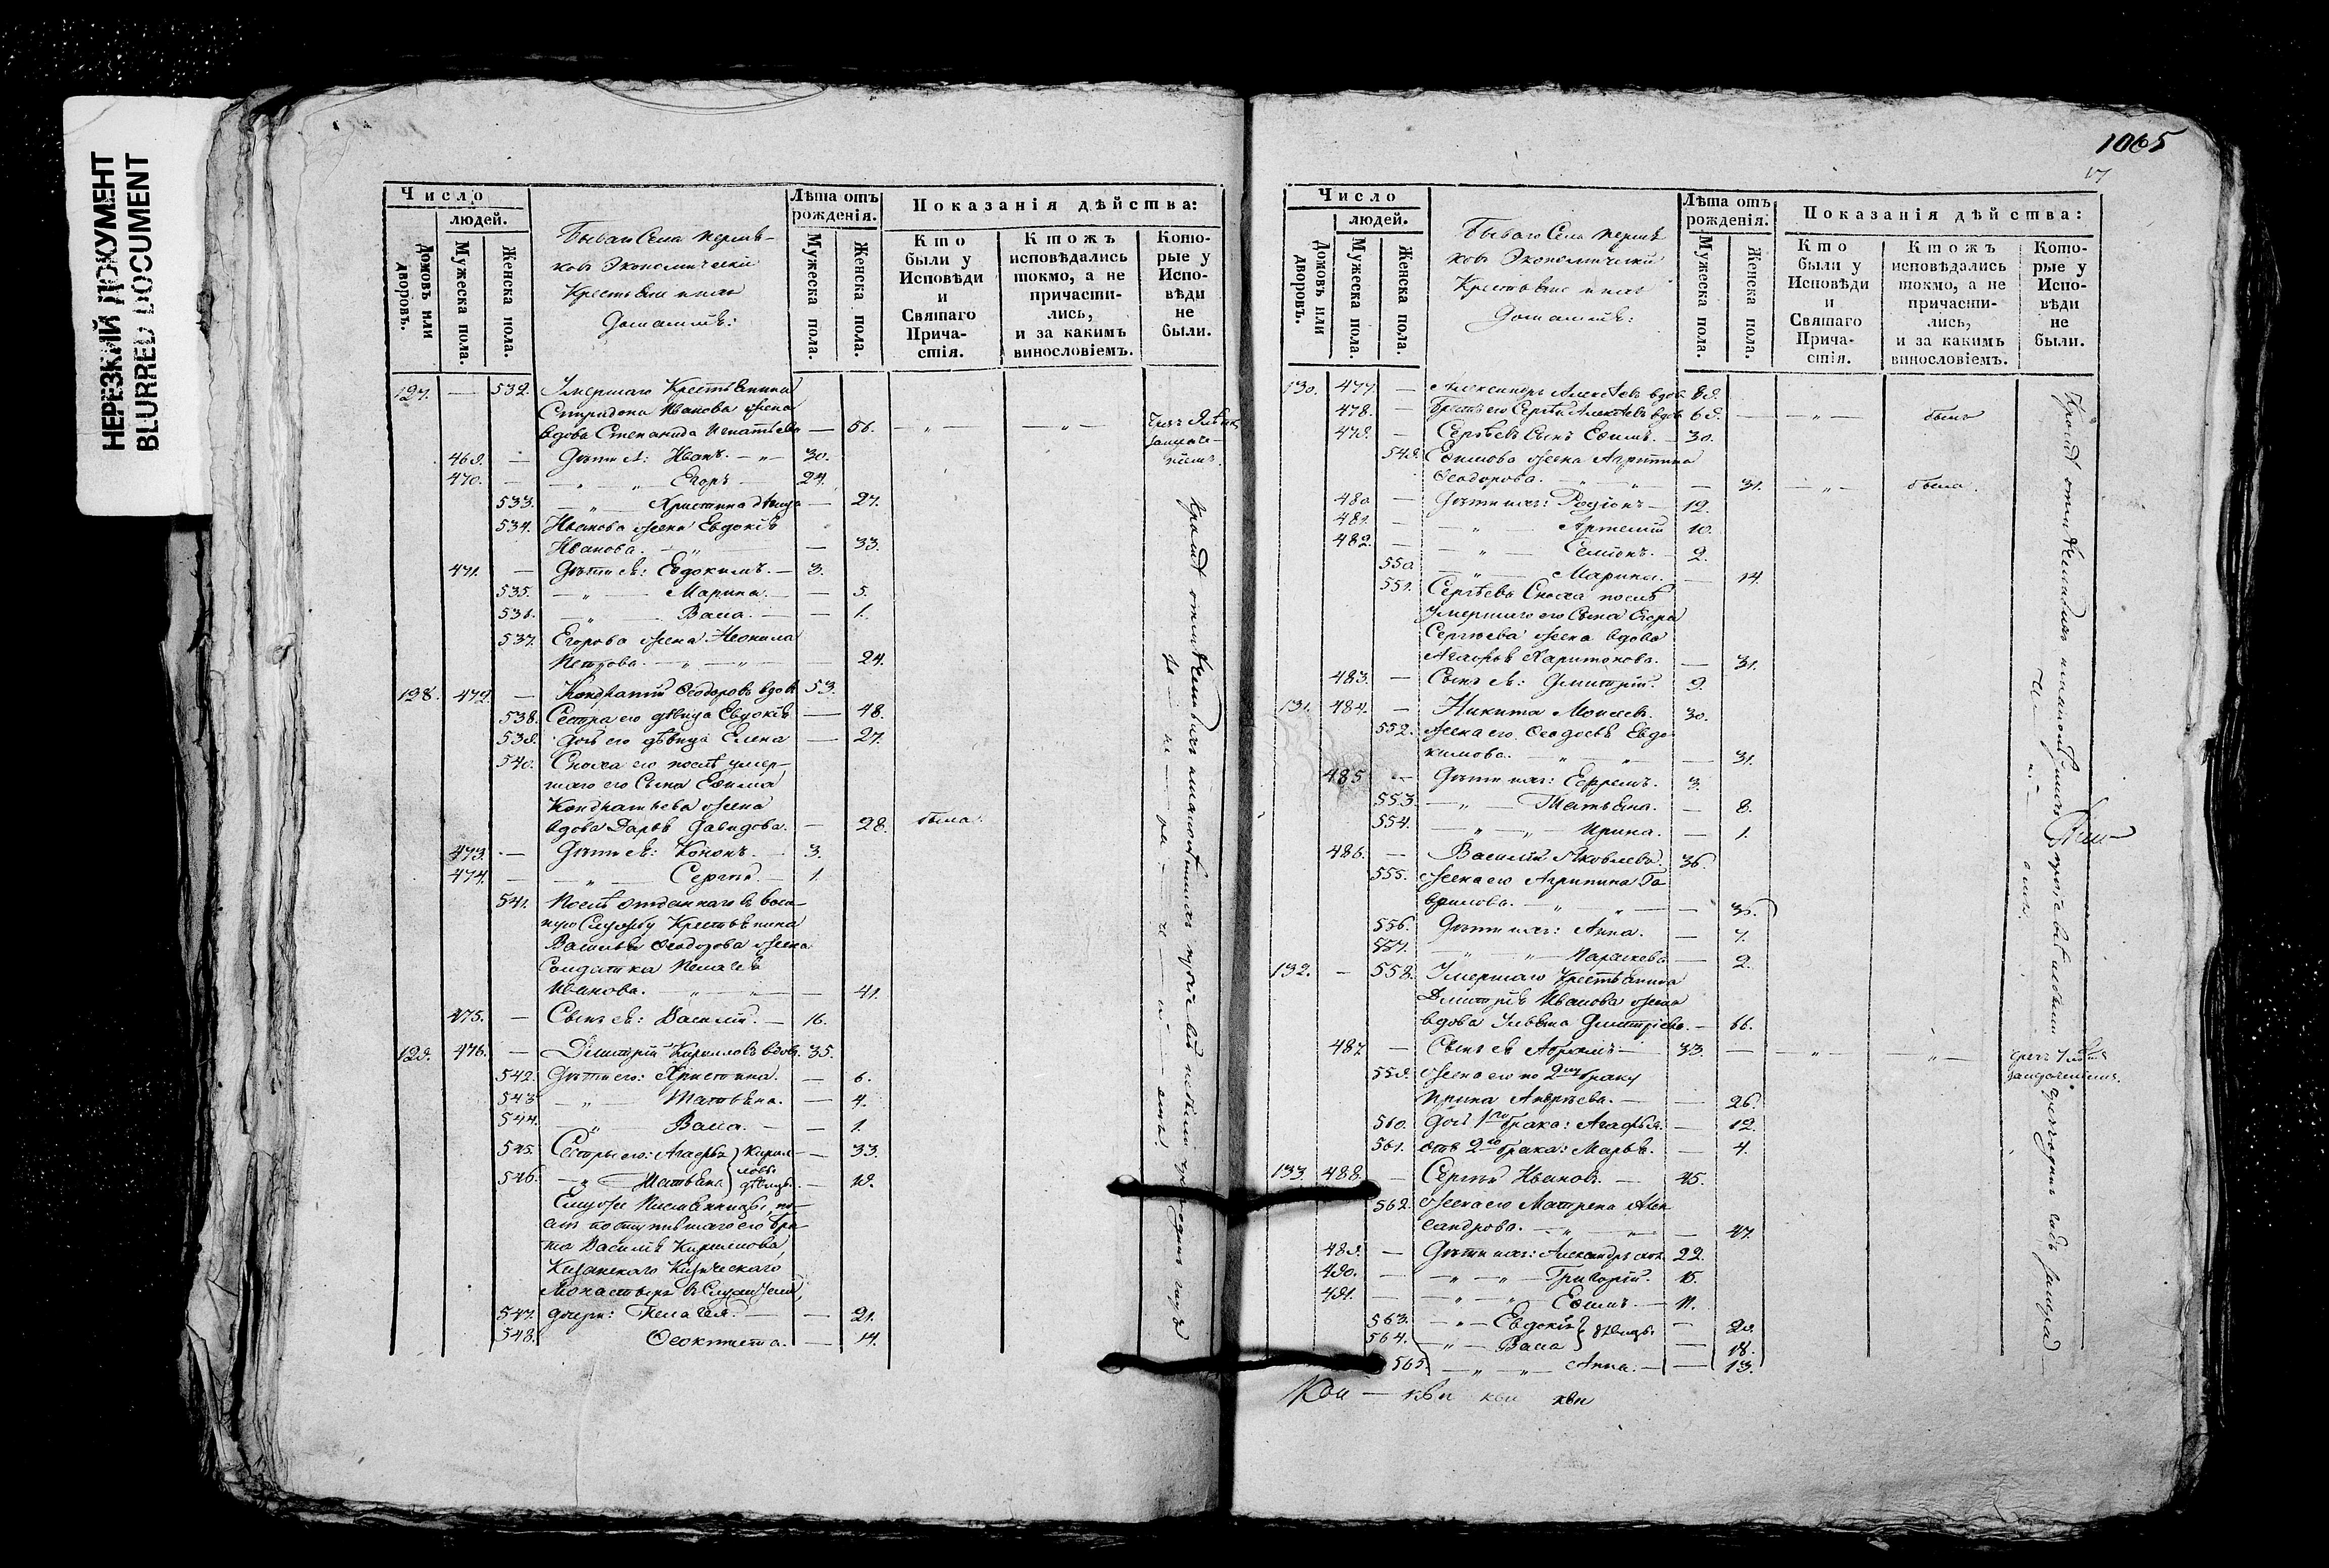 НЕРЕЗКИЙ ДОКУМЕНТ
BLURRED DOCUMENT
Число
людей.
Домовъ или дворовъ.
Мужеска пола.
Женска пола.
Бывшаго Села
Экономическіе
Крестьяне и ихъ
Домашніѣ:
Лѣта отъ рожденія.
Мужеска пола.
Женска пола.
Показанія дѣйства:
Кто были у Исповѣди и Святаго Причастія.
Ктожъ исповѣдались токмо, а не причастились, и за какимъ винословіемъ.
Которые у Исповѣди не были.
127. — 532. Умершаго Крестьянина
Спиридона Иванова жена
вдова Степанида Игнатьева — 56.
469. — Дѣти ея: Иванъ. 30.
470. — Егоръ 24.
533. Христина дѣвица — 27.
534. Иванова жена Евдокія
Иванова. — 33.
471. — Дѣти ея: Евдокимъ. — 3.
535. Марина. — 5.
536. Васса. — 1.
537. Егорова жена Неонила
Петрова. — 24.
128. 472. — Кондратій Ѳеодоровъ вдовъ 53.
538. Сестра его дѣвица Евдокія — 48.
539. Дочь его дѣвица Елена — 27.
540. Сноха его послѣ умер-
шаго его Сына Ефима
Кондратьева жена
вдова Дарья Давидова. — 28. была.
473. — Дѣти ея: Кононъ. 3.
474. — Сергѣй. — 1.
541. Послѣ отданнаго въ воен-
ную Службу Крестьянина
Василья Ѳеодорова жена
Солдатка Пелагея
Иванова. — 41.
475. — Сынъ ея: Василій. — 16.
129. 476. — Димитрій Кирилловъ вдовъ. 35.
542. Дѣти его: Христина. — 6.
543. Татьяна. — 4.
544. Васса. — 1.
545. Сестры его: Агафья Кирил- — 33.
546. Татьяна ловы дѣвицы. — 19.
Ему же Племянницы, по-
слѣ поступившаго его бра-
та Василья Кириллова,
Казанскаго Кизическаго
Монастыря въ Служители,
547. дочери: Пелагея. — 21.
548. Ѳеоктиста. — 14.
1065
17
Число
людей.
Домовъ или дворовъ.
Мужеска пола.
Женска пола.
Бывшаго Села
Экономическіе
Крестьяне и ихъ
Домашніѣ:
Лѣта отъ рожденія.
Мужеска пола.
Женска пола.
Показанія дѣйства:
Кто были у Исповѣди и Святаго Причастія.
Ктожъ исповѣдались токмо, а не причастились, и за какимъ винословіемъ.
Которые у Исповѣди не были.
130. 477. — Александръ Алексѣевъ вдов. 89.
478. — Братъ его Сергѣй Алексѣевъ вдов. 69. былъ
479. — Сергѣевъ Сынъ Ефимъ. — 30.
549. Ефимова жена Агрипина
Ѳеодорова. — 31. была.
480. — Дѣти ихъ: Родіонъ — 12.
481. — Артемій 10.
482. — Семіонъ. — 2.
550. Марина. — 14.
551. Сергѣева Сноха послѣ
умершаго его Сына Егора
Сергѣева жена вдова
Агафья Харитонова. — 31.
483. — Сынъ ея: Димитрій. 9.
131. 484. — Никита Моисеевъ. 30.
552. Жена его Ѳеодосья Евдо
кимова. — 31.
485. — Дѣти ихъ: Ефремъ. 3.
553. Татьяна. — 8.
554. Ирина. — 1.
486. — Василій Яковлевъ. 36.
555. Жена его Агрипина Га
врилова. — 35.
556. Дѣти ихъ: Анна. — 7.
557. Параскева — 2.
132. — 558. Умершаго Крестьянина
Димитрія Иванова жена
вдова Ульяна Дмитріева. — 66.
487. — Сынъ ея Абрамъ — 33.
559. Жена его по 2му браку
Ирина Андреева. — 26.
560. Дочь 1го брака: Агафья. — 12.
561. Отъ 2го брака: Марья. — 4.
133. 488. — Сергѣй Ивановъ. — 45.
562. Жена его Матрена Алек
сандрова. — 47.
489. — Дѣти ихъ: Александръ 22.
490. — Григорій. 15.
491. — Ефимъ. — 11.
563. Евдокія дѣвицы. — 20.
564. Васса — 18.
565. Анна. — 13.